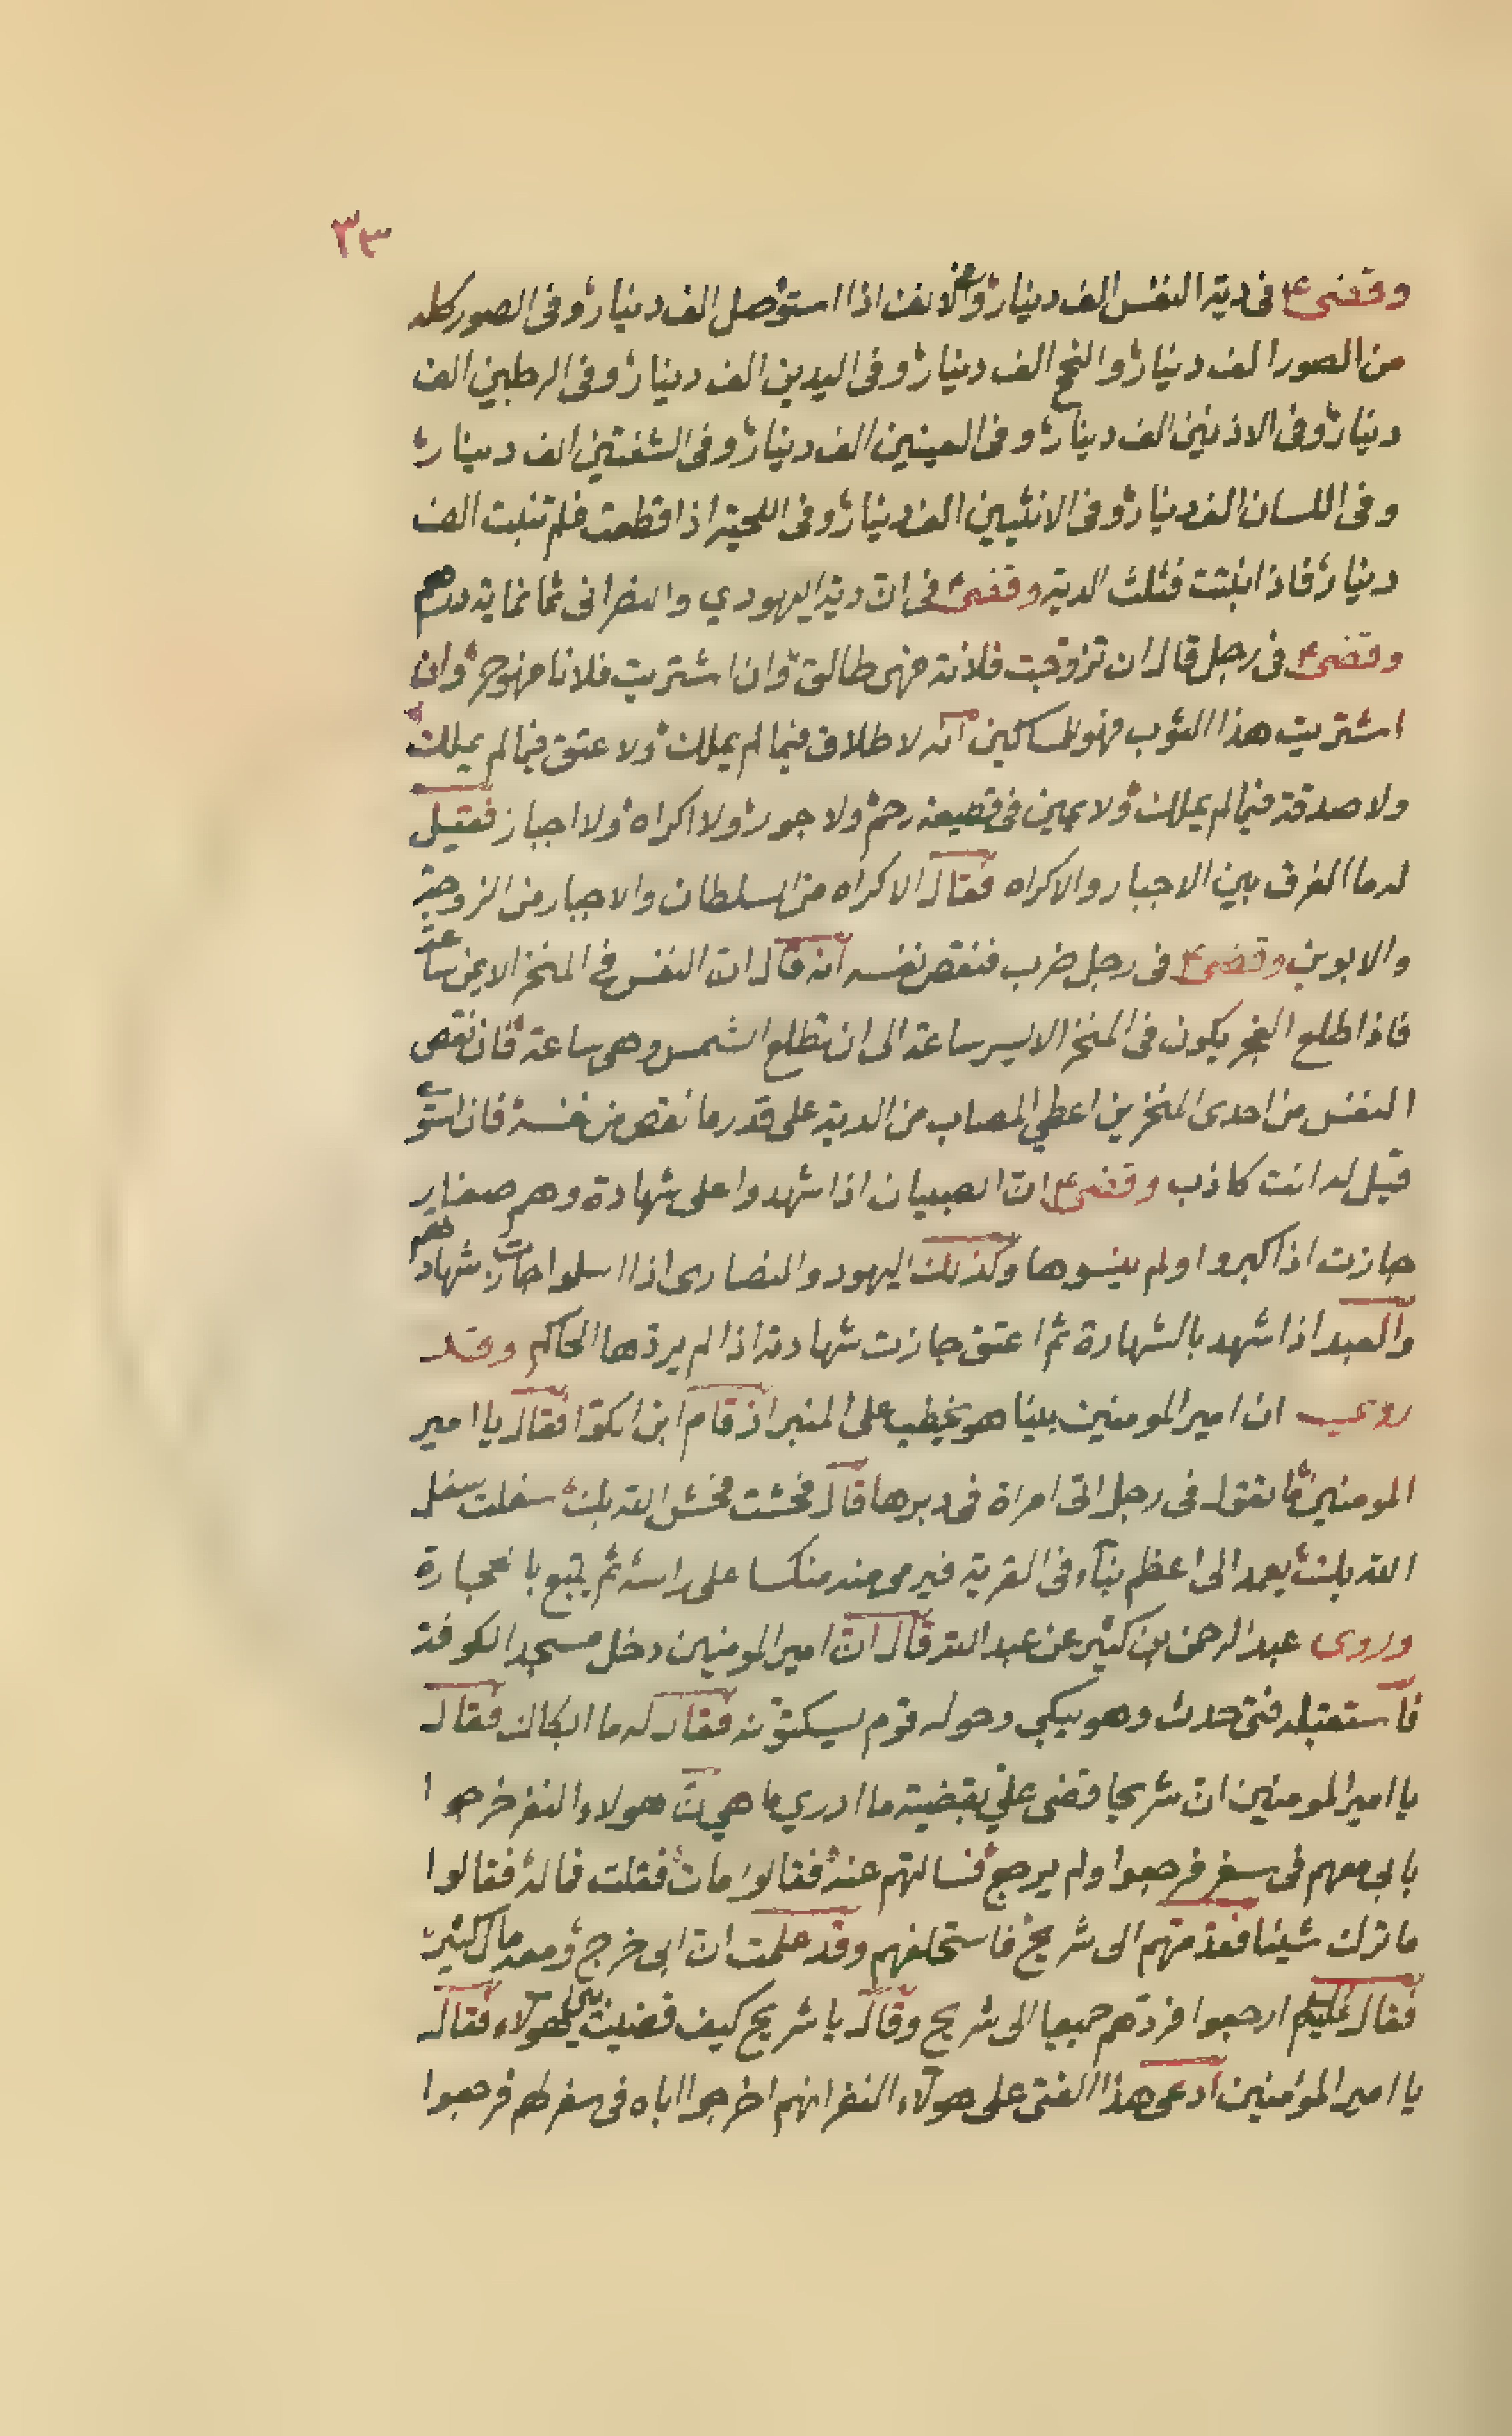 ٣٣
وقضى ع في دية النفس الف دينار وفي الانف اذا استوصل الف دينار وفي الصور كله
من الصور الف دينار والبح الف دينار وفي اليدين الف دينار وفي الرجلين الف
دينار وفي الاذنين الف دينار وفي العينين الف دينار وفي الشفتين الف دينار
وفي اللسان الف دينار وفي الانثيين الف دينار وفي اللحية اذا قطعت فلم تنبت الف
دينار فاذا نبتت فثلث الدية وقضى ع في ان دية اليهودي والنصراني ثمانماية درهم
وقضى ع في رجل قال ان تزوجت فلانة فهى طالق وان اشتريت فلانا فهو حر وان
اشتريت هذا الثوب فهو للمساكين انه لا طلاق فيما لم يملك ولا عتق فيما لم يملك
ولا صدقة فيما لم يملك ولا يمين في قطيعة رحم ولا جور ولا اكراه ولا اجبار فقيل
له ما الفرق بين الاجبار والاكراه فقال الاكراه من السلطان والاجبار من الزوجة
والابوين وقضى ع في رجل ضرب فنقص نفسه انه قال ان النفس في المنخر الايمن ساعة
فاذا طلع الفجر يكون في المنخر الايسر ساعة الى ان تطلع الشمس وهى ساعة فان نقص
النفس من احدى المنخرين اعطي المصاب من الدية على قدر ما نقص من نفسه فان استوى
قيل له انت كاذب وقضى ع ان الصبيان اذا شهدوا على شهادة وهم صغار
جازت اذا كبروا ولم ينسوها وكذلك اليهود والنصارى اذا اسلموا جازت شهادتهم
والعبد اذا شهد بالشهادة ثم اعتق جازت شهادته اذا لم يردها الحاكم وقد
روى ان امير المومنين بينا هو يخطب على المنبر اذ قام ابن الكوا فقال يا امير
المومنين ما تقول في رجل اتى امراة في دبرها قال فحشت فحش الله بك سفلت سفل
الله بك يعمد الى اعظم بناء في القرية فيرمى منه منكسا على راسه ثم يتبع بالحجارة
وروى عبد الرحمن بن كثير عن عبد الله قال ان امير المومنين دخل مسجد الكوفة
فاستقبله فتى حدث وهو يبكي وحوله قوم يسكتونه فقال له ما ابكاك فقال
يا امير المومنين ان شريحا قضى علي بقضية ما ادري ما هي ان هولاء النفر خرجوا
بابي معهم في سفر فرجعوا ولم يرجع فسالتهم عنه فقالوا مات فقلت فماله فقالوا
ما ترك شيئا فقدمتهم الى شريح فاستحلفهم وقد علمت ان ابي خرج ومعه مال كثير
فقال لهم ارجعوا فردهم جميعا الى شريح وقال يا شريح كيف قضيت بين هولاء فقال
يا امير المؤمنين ادعى هذا الفتى على هولاء النفر انهم اخرجوا اباه في سفر لهم فرجعوا